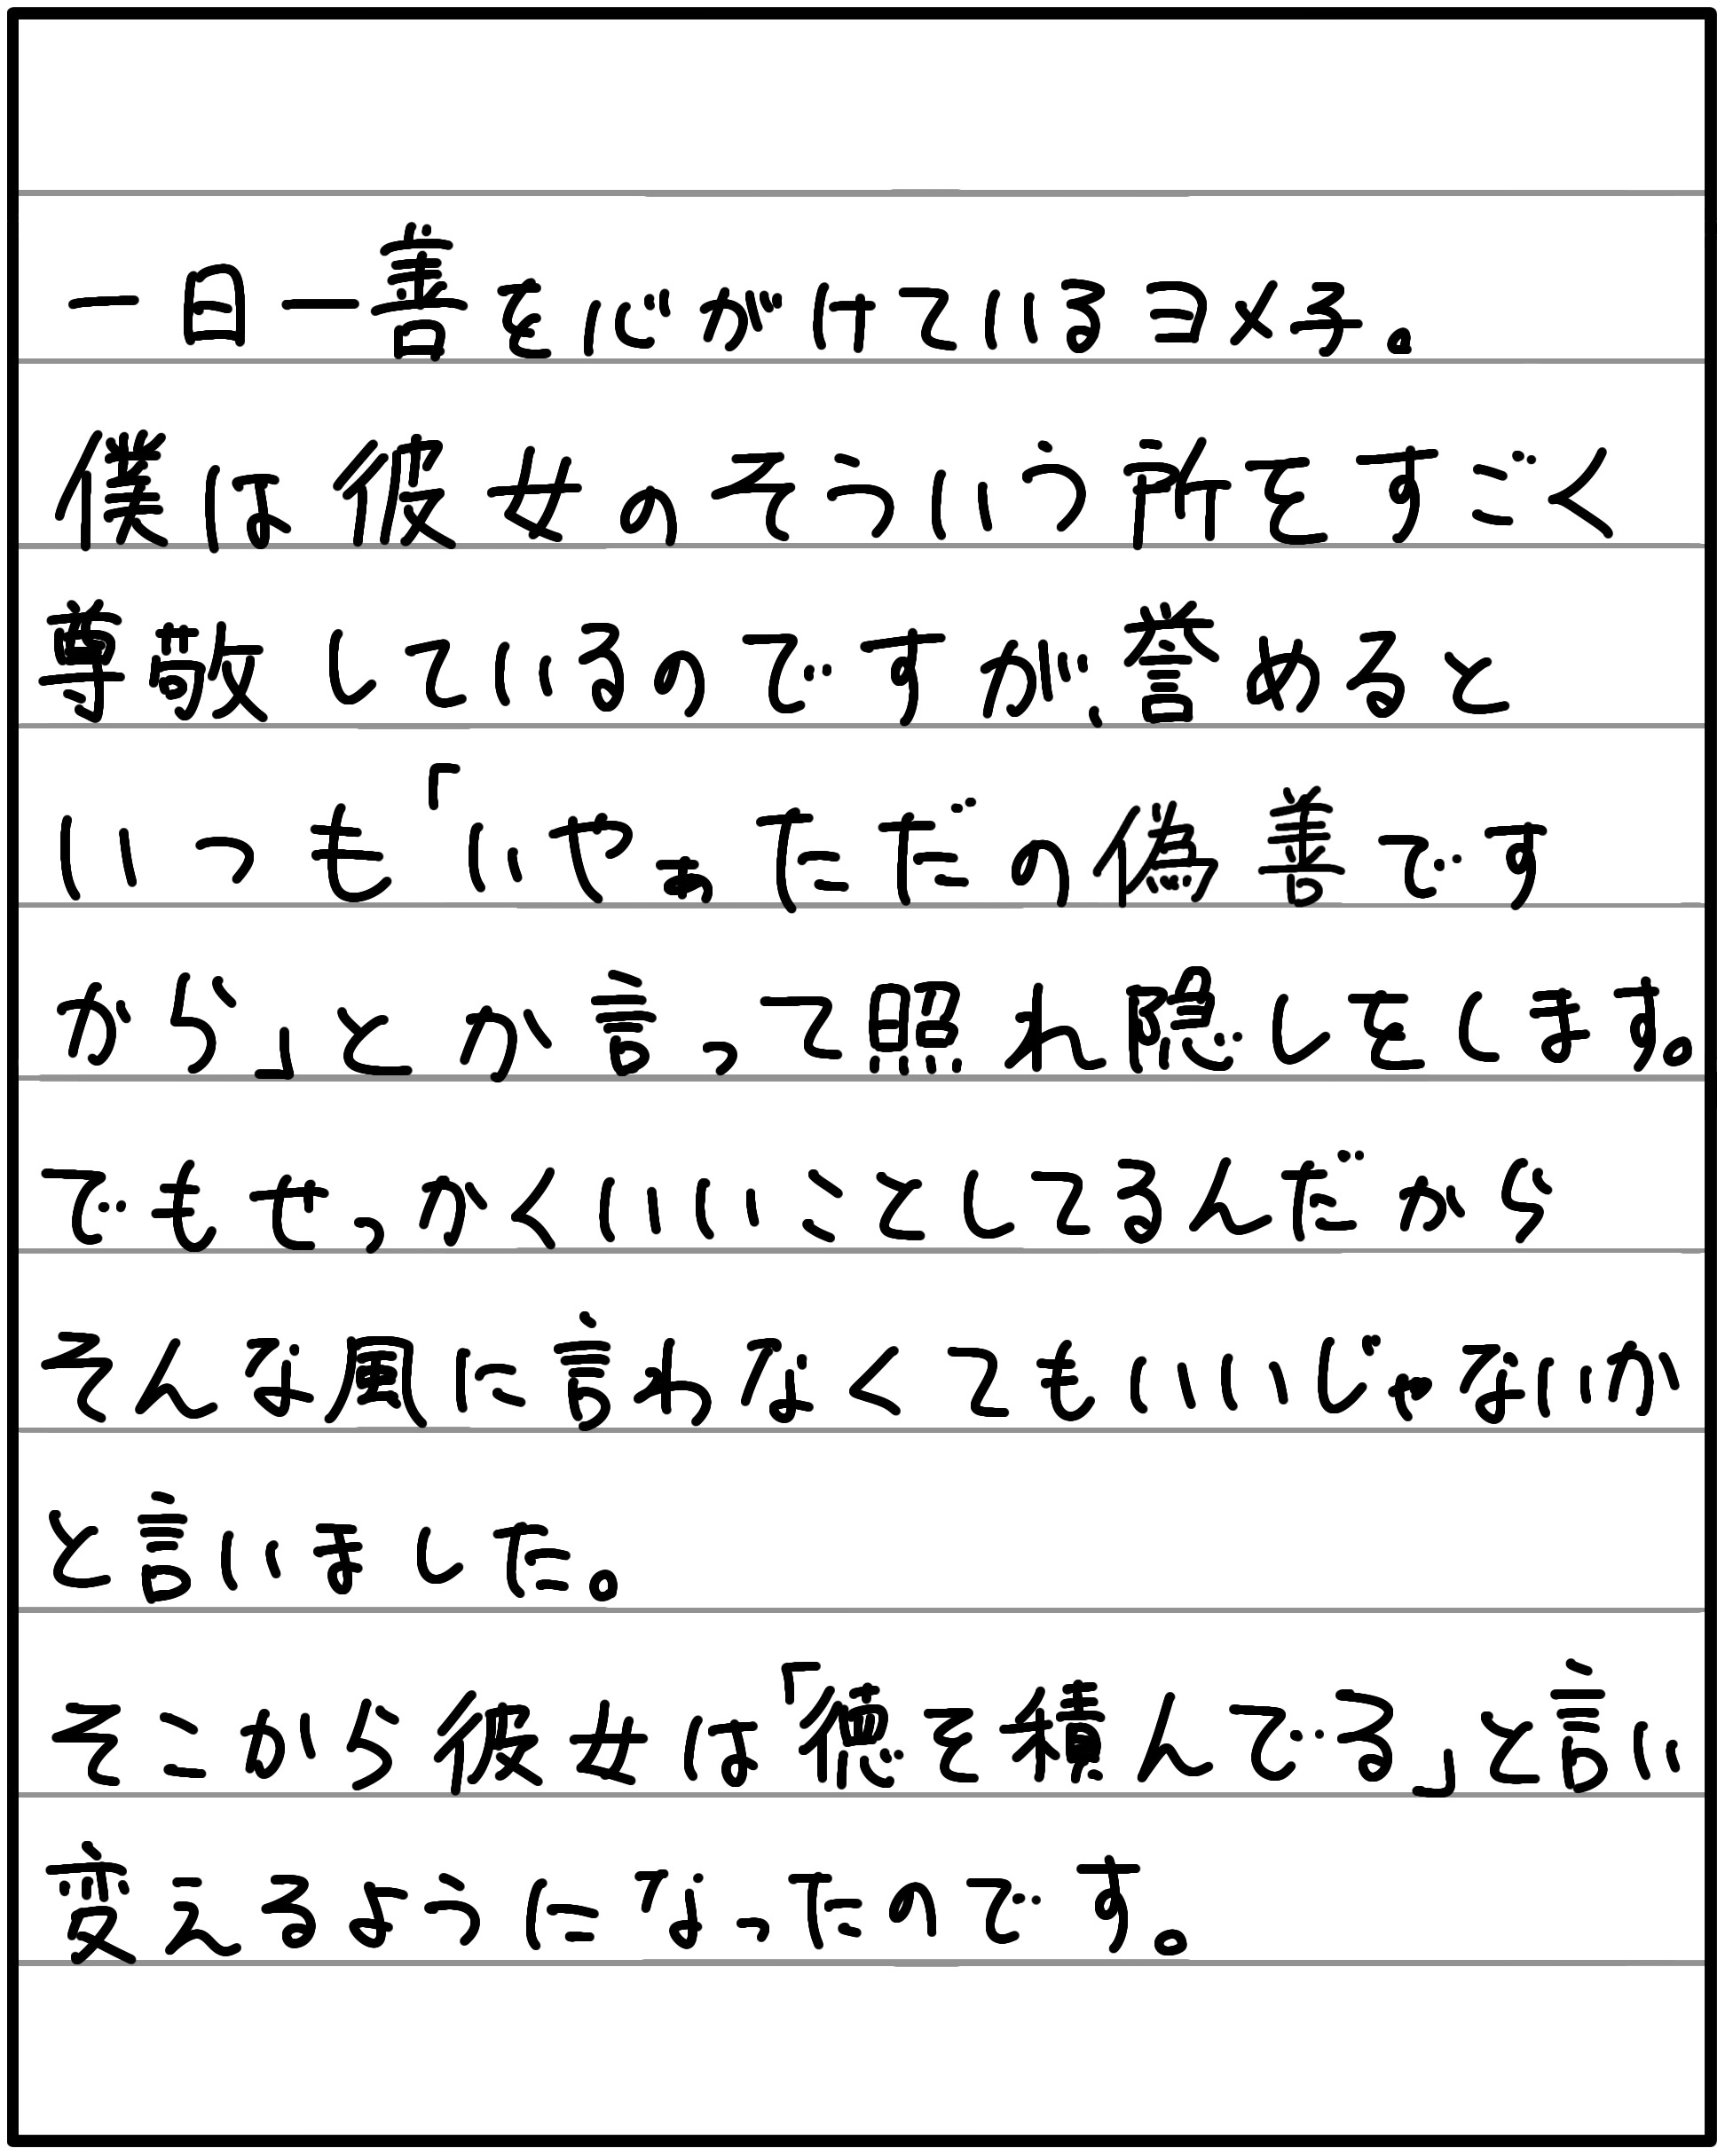 一日一善を心がけているヨメ子。
僕は彼女のそういう所をすごく
尊敬しているのですが、誉めると
いつも「いやぁただの偽善です
から」とか言って照れ隠しをします。
でもせっかくいいことしてるんだから
そんな風に言わなくてもいいじゃないか
と言いました。
そこから彼女は「徳を積んでる」と言い
変えるようになったのです。